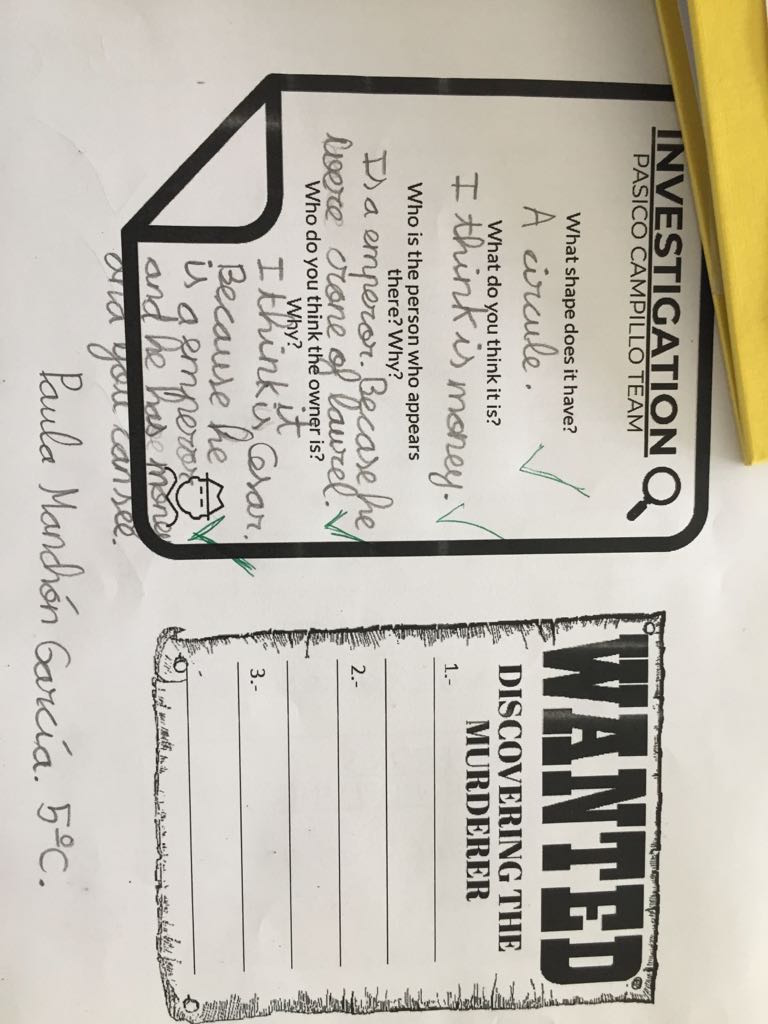 INVESTIGATION
PASICO CAMPILLO TEAM
What shape does it have?
A circule.
What do you think it is?
I think is money.
Who is the person who appears
there? Why?
Is a emperor. Becase he
were crone of laurel.
Who do you think the owner is?
Why?
I think it is Cesar.
Because he
is a emperor
and he hase money
and you can see.
WANTED
DISCOVERING THE
MURDERER
1.-
2.-
3.-
Paula Manchón García. 5ºC.